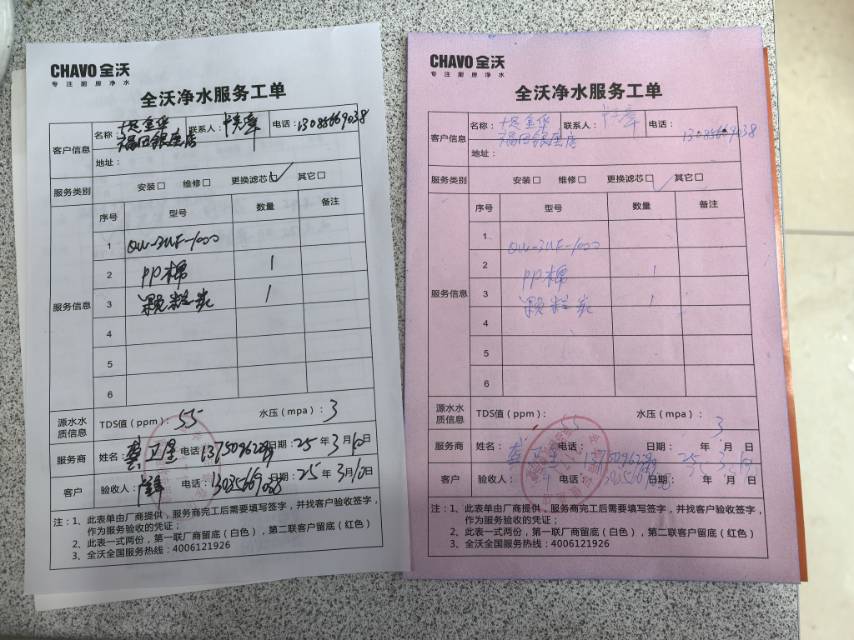 CHAVO 全沃
专注厨房净水
全沃净水服务工单
客户信息
名称：
福田银座店
联系人：
电话：
地址：
服务类别
安装□ 维修□ 更换滤芯☑ 其它□
服务信息
序号 型号 数量 备注
1 QW-3UF-1000
2 PP棉 1
3 颗粒炭 1
4
5
6
源水水质信息
TDS值（ppm）：55 水压（mpa）：3
服务商 姓名： 电话： 日期：25年3月10日
客户 验收人： 电话： 日期：25年3月10日
注：1、此表单由厂商提供，服务商完工后需要填写签字，并找客户验收签字，
作为服务验收的凭证；
2、此表一式两份，第一联厂商留底（白色），第二联客户留底（红色）
3、全沃全国服务热线：4006121926
CHAVO 全沃
专注厨房净水
全沃净水服务工单
客户信息
名称：
福田银座店
联系人：
电话：
地址：
服务类别
安装□ 维修□ 更换滤芯☑ 其它□
服务信息
序号 型号 数量 备注
1 QW-3UF-1000
2 PP棉 1
3 颗粒炭 1
4
5
6
源水水质信息
TDS值（ppm）：55 水压（mpa）：3
服务商 姓名： 电话： 日期： 年 月 日
客户 验收人： 电话： 日期： 年 月 日
注：1、此表单由厂商提供，服务商完工后需要填写签字，并找客户验收签字，
作为服务验收的凭证；
2、此表一式两份，第一联厂商留底（白色），第二联客户留底（红色）
3、全沃全国服务热线：4006121926